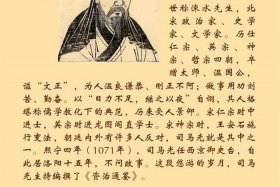 世称涑水先生，北
宋政治家、史学
家、文学家。历仕
仁宗、英宗、神
宗、哲宗四朝，卒
赠太师、温国公，
谥“文正”，为人温良谦恭、刚正不阿；做事用功刻
苦、勤奋。以“日力不足，继之以夜”自诩，其人格
堪称儒学教化下的典范，历来受人景仰。宋仁宗时中
进士，英宗时进龙图阁直学士。宋神宗时，王安石施
行变法，朝廷内外有许多人反对，司马光就是其中之
一。熙宁四年（1071年），司马光任西京御史台，自
此居洛阳十五年，不问政事。这段悠游的岁月，司马
光主持编撰了《资治通鉴》。